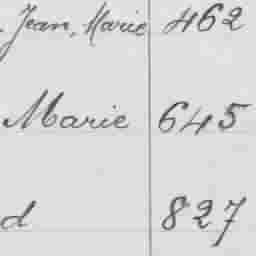 Jean, Marie 462
Marie 645
d 827